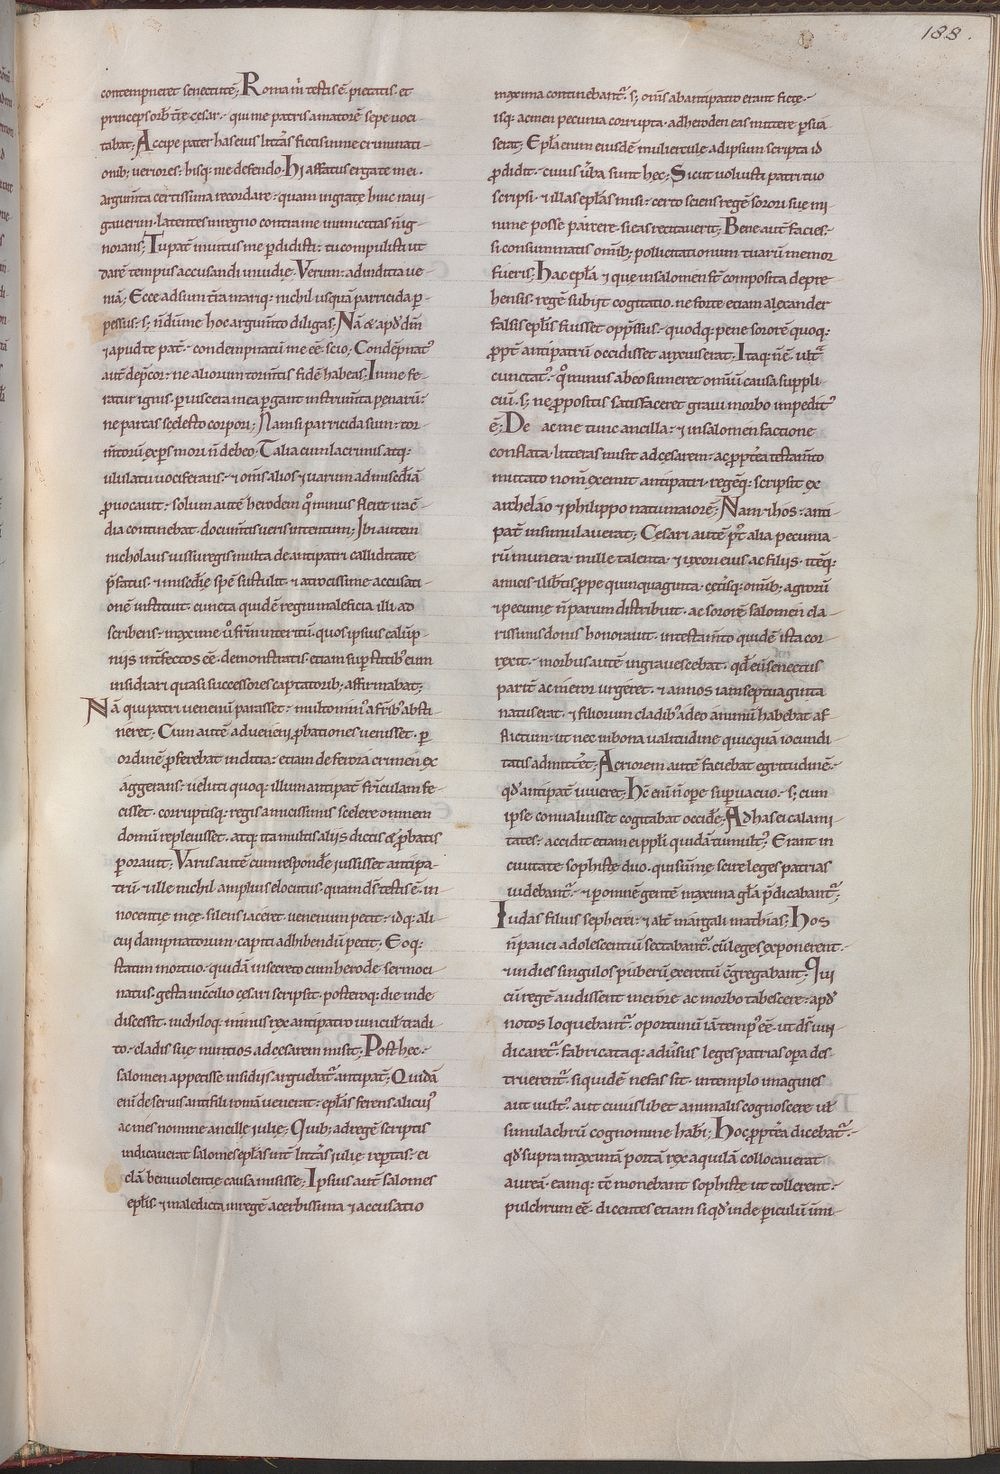 188.
contempneret senectutē; Roma m̄ testis ē pietatis· et
princeps orb̄ trę cesar· qui me patris amatorē sepe voci
tabat; Accipe pater has eius litt̄as fictis in me criminati
onib; veriores· hisq; me defendo; Hi affatus ergate mei·
argum̄ta certissima recordare· quam ingratę huic navi
gaverim· latentes in regno contra me inimicitias n̄ ig
norans; Tu pat̄ invitus me p̄didisti· tu compulisti ut
darē tempus accusandi invidię; Verum· ad indicta ve
niā; Ecce adsum t̄ra mariq; nichil usquā parricida p̄
pessus· s; n̄dū me hoc argum̄to diligas; Nā & ap̄d d̄m
⁊ apud te pat̄· condempnatū me ēē scio; Condēpnat᷒
aut̄ dep̄cor· ne aliorum torm̄tis fidē habeas; In me fe
ratur ignis· per viscera mea p̄gant instrum̄ta penarū·
ne parcas scelesto corpori; Nam si parricida sum· tor
m̄torū exp̄s mori n̄ debeo; Talia cum lacrimis atq;
ululatu vociferans· ⁊ om̄s alios ⁊ varum ad misēdiā
p̄vocavit· solum autē herodem q̊ minus fleret iracū
dia continebat· docum̄tis veris intentum; Ibi autem
nicholaus iussu regis multa de antipatri calliditate
p̄fatus· ⁊ misēdię spē sustulit· ⁊ atrocissime accusati
onē instituit· cuncta quidē regni maleficia illi ad
scribens· maxime v̊ fr̄m interitū, quos ipsius calūp
niis int̄fectos ēē· demonstratis· etiam sup̄stitib᷒ eum
insidiari quasi successores captatorib; affirmabat;
Nā qui patri venenū parasset· multo min᷒ a fr̄ib᷒ absti
neret; Cum autē ad venenii p̄bationes venisset· p̄
ordinē p̄ferebat indicia· etiam de ferora crimen ex
aggerans· veluti quoq; illum antipat̄ fr̄iculam fe
cisset· corruptisq; regis amicissimis scelere omnem
domū replevisset· atq; ita multis aliis dictis et p̄batis
peroravit; Varus autē cum respondē iussisset antipa
trū· ⁊ ille nichil amplius elocutus· quam d̄s testis ē· in
nocentię meę· silens iacēret· venenum petit· idq; ali
cui dampnatorum· capita adhibendū petit; Eoq;
statim mortuo· quidā in secreto cum herode sermoci
natus· gesta in c̄cilio cesari scripsit· posteroq; die inde
discessit· nichiloq; minus rex antipatro vinculꝭ tradi
to· cladis suę nuntios ad cesarem misit; Post hec·
salomen appetisse insidiis arguebat̄ antipat̄; Quidā
enī de servis antifili romā venerat· ep̄las ferens alicui᷒
acmes nomine ancillę iulię; Quib; ad regē scriptis
indicaverat salomes ep̄las int̄ litt̄as iulię rep̄tas· ei
clā benivolentię causa misisse; Ipsius aut̄ salomes
ep̄lis· ⁊ maledicta in regē acerbissima ⁊ accusatio
maxima continebant̄· s; om̄s ab antipatro erant ficte·
isq; acmen pecunia corrupta· ad heroden eas mittere p̄sua
serat; Ep̄la enim eiusdē mulierculę ad ipsum scripta id
p̄didit· cuius v̄ba sunt hęc; Sicut voluisti patri tuo
scripsi· ⁊ illas ep̄las misi· certo sciens regē sorori sue mi
nime posse parcere si eas recitaverit; Bene aut̄ facies·
si consummatis omib; pollicitationum tuarū memor
fueris; Hac ep̄la ⁊ que in salomen f̄t composita depre
hensis· regē subiit cogitatio· ne forte etiam alexander
falsis ep̄lis fuisset opp̄ssus· quodq; pene sororē quoq;
p̄pt̄ antipatrū occidisset anxius erat; Itaq; n̄ē ult̄
cunctat᷒· q̊ minus ab eo sumeret omniū causa suppli
ciū· s; ne p̄positis satisfaceret gravi morbo impedit᷒
ē; De acme tunc ancilla· ⁊ in salomen factione
conflata· litteras misit ad cesarem· ac p̄pt̄ea testam̄to
mutato nom̄ exemit antipatri· regēq; scripsit ex
archelao ⁊ philippo natu maiorē; Nam ⁊ hos anti
pat̄ insimulaverat; Cesari autē p̄t̄ alia pecunia
rū munera· mille talenta· ⁊ uxori eius ac filiis· itēq;
amicis ⁊ lib̄tis p̄pe quinquaginta· cęt̄isq; omib; agrorū
⁊ pecunię n̄ parum distribuit· ac sororē salomen cla
rissimis donis honoravit· in testam̄to quidē ista cor
rexit· morbus autē ingravescebat· q̄d eū senectus
parit̄ ac meror urgēret· ⁊ annos iam septuaginta
natus erat· ⁊ filiorum cladib᷒ adeo animū habebat af
flictum· ut nec in bona valitudine quicquā iocundi
tatis admitt̄et; Acriorem autē faciebat egritudinē·
q̄d antipat̄ viveret; Hc̄ enī n̄ ope supervacuo· s; cum
ipse convaluisset cogitabat occidē; Ad has ei calami
tates· accidit etiam ei pp̄li quidā tumult᷒; Erant in
civitate sophistę duo· qui sum̄e scire leges patrias
videbant̄· ⁊ ip̄ omnē gentē maxima gl̄a p̄dicabant̄;
Iudas filius sepherei· ⁊ alt̄ margali mathias; Hos
n̄ pauci adolescentiū sectabant̄· cū leges exponerent·
⁊ in dies singulos puberū exercitū c̄gregabant; Qui
cū regē audissent merore ac morbo tabescere· ap̄d
notos loquebant̄· oportunū iā temp᷒ ēē· ut d̄s vin
dicaret̄· fabricataq; adv̄sus leges patrias op̄a des
truerent̄· siquidē nefas sit· in templo imagines
aut vult᷒ aut cuiuslibet animalis cognoscere ul̄
simulachrū cognomine hab̄i; Hoc p̄pt̄ea dicebat̄·
q̄d supra maximā portā rex aquilā collocaverat
aureā· eamq; t̄c monebant sophistę ut tollerent·
pulchrum ēē· dicentes etiam si q̄d inde periculū imi